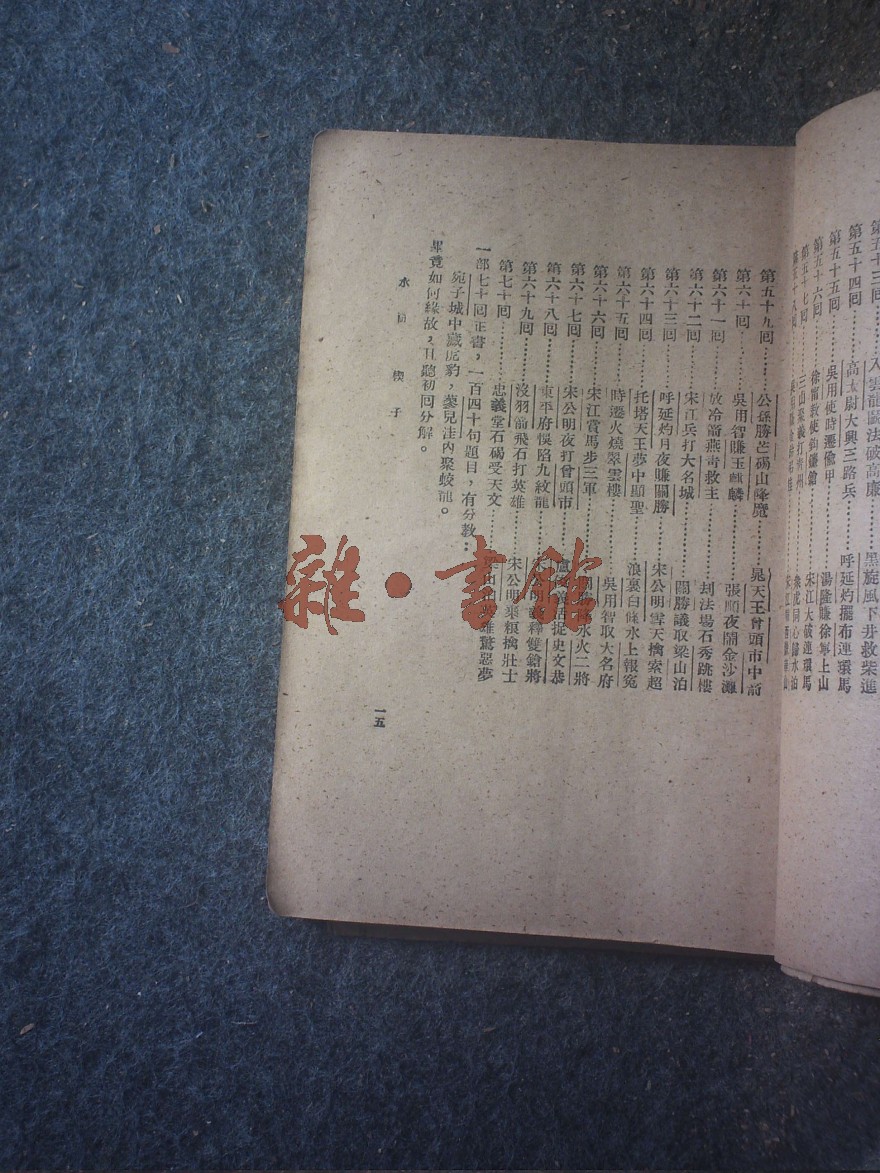 第五十四回………高太尉大興三路兵………呼延灼擺布連環馬
第五十五回………吳用使時遷偸甲………湯隆賺徐寧上山
第五十六回………徐寧敎使鈎鐮鎗………宋江大破連環馬
第五十七回………三山聚義打靑州………衆虎同心歸水泊
第五十九回………公孫勝芒碭山降魔………晁天王曾頭市中箭
第六十回………吳用智賺玉麒麟………張順夜鬧金沙灘
第六十一回………放冷箭燕靑救主………刦法場石秀跳樓
第六十二回………宋江兵打大名城………關勝議取梁山泊
第六十三回………呼延灼月夜賺關勝………宋公明雪天擒索超
第六十四回………托塔天王夢中顯聖………浪裏白條水上報冤
第六十五回………時遷火燒翠雲樓………吳用智取大名府
第六十六回………宋江賞馬步三軍………關勝降水火二將
第六十七回………宋公明夜打曾頭市………盧俊義活捉史文恭
第六十八回………東平府悞陷九紋龍………宋公明義釋雙鎗將
第六十九回………沒羽箭飛石打英雄………宋公明棄糧擒壯士
第七十回………忠義堂石碣受天文………梁山泊英雄驚惡夢
一部七十回正書，一百四十句題目，有分敎：
宛子城中藏虎豹，蓼兒洼內聚蛟龍。
畢竟如何緣故，且聽初回分解。
水滸 楔子
一五
雜·書館